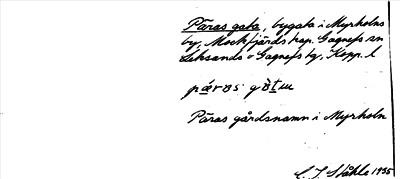 Päras gata, bygata i Myrholns
by, Mockfjärds kap. Gagnefs sn
Leksands o Gagnefs tg, Kopp. l
Päras gårdsnamn i Myrholn
C. I. Ståhle 1935